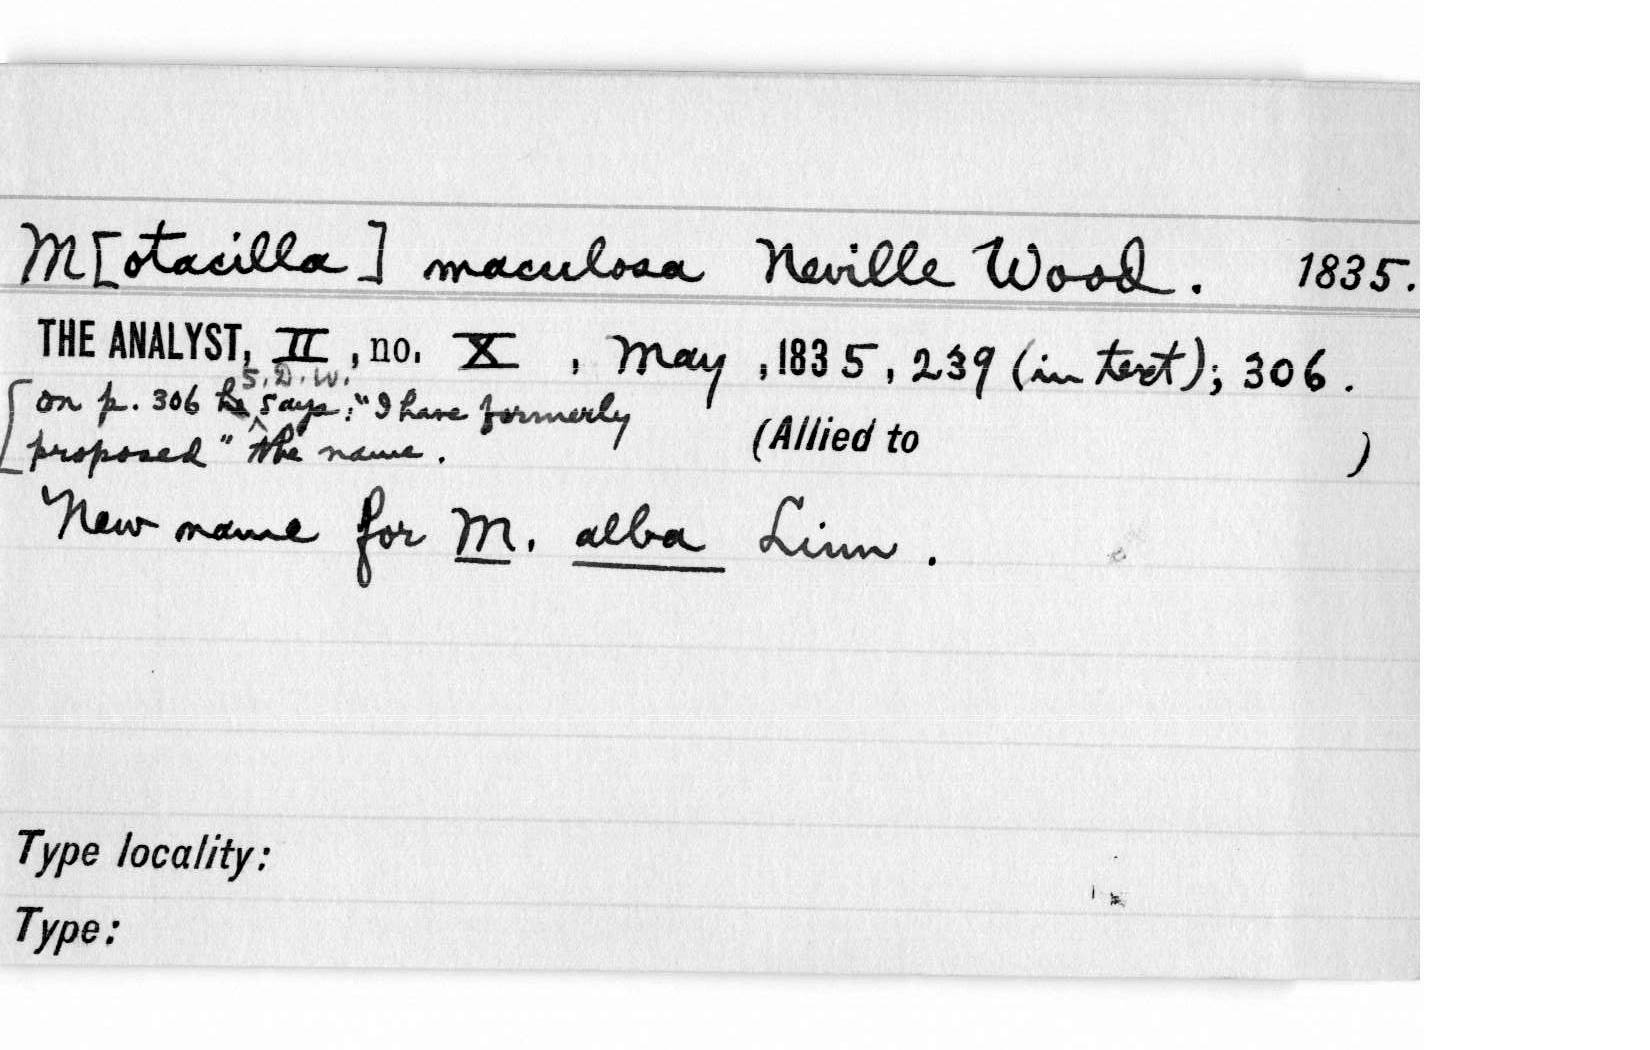 M[otacilla] maculosa Neville Wood. 1835.
THE ANALYST, II, no. X, May, 1835, 239 (in text); 306.
S.D.W.
[on p. 306 he says: "I have formerly
proposed" the name.
(Allied to )
New name for M. alba Linn.
Type locality:
Type: